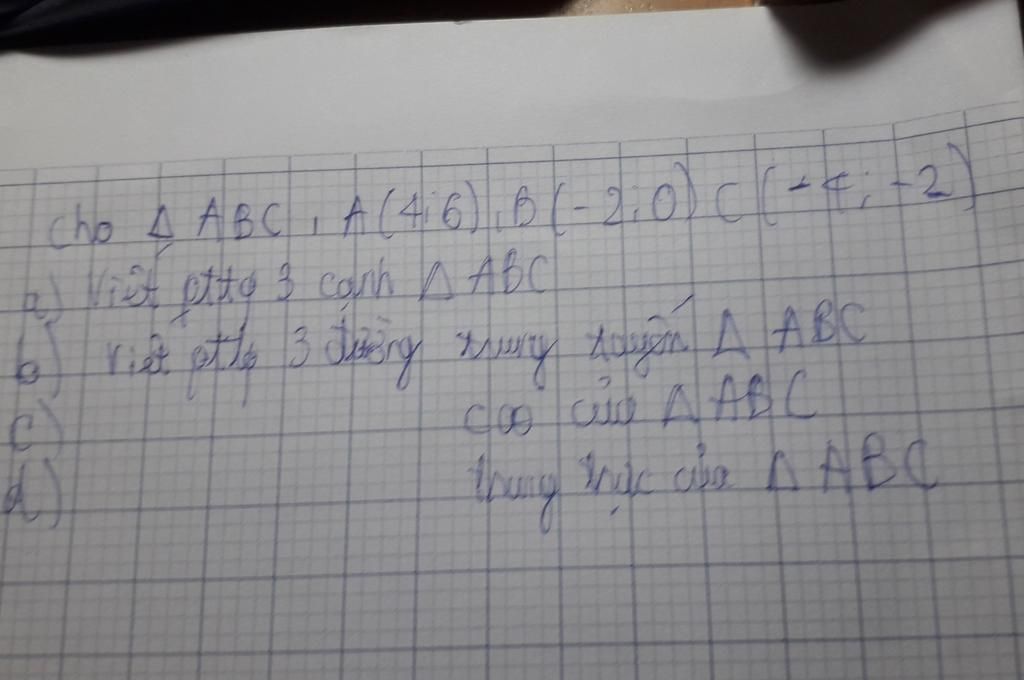 Cho Δ ABC, A(4;6), B(-2;0) C(-4;-2)
a) Viết pttq 3 cạnh Δ ABC
b) Viết pttq 3 đường trung tuyến Δ ABC
c) cao của Δ ABC
d) trung trực của Δ ABC